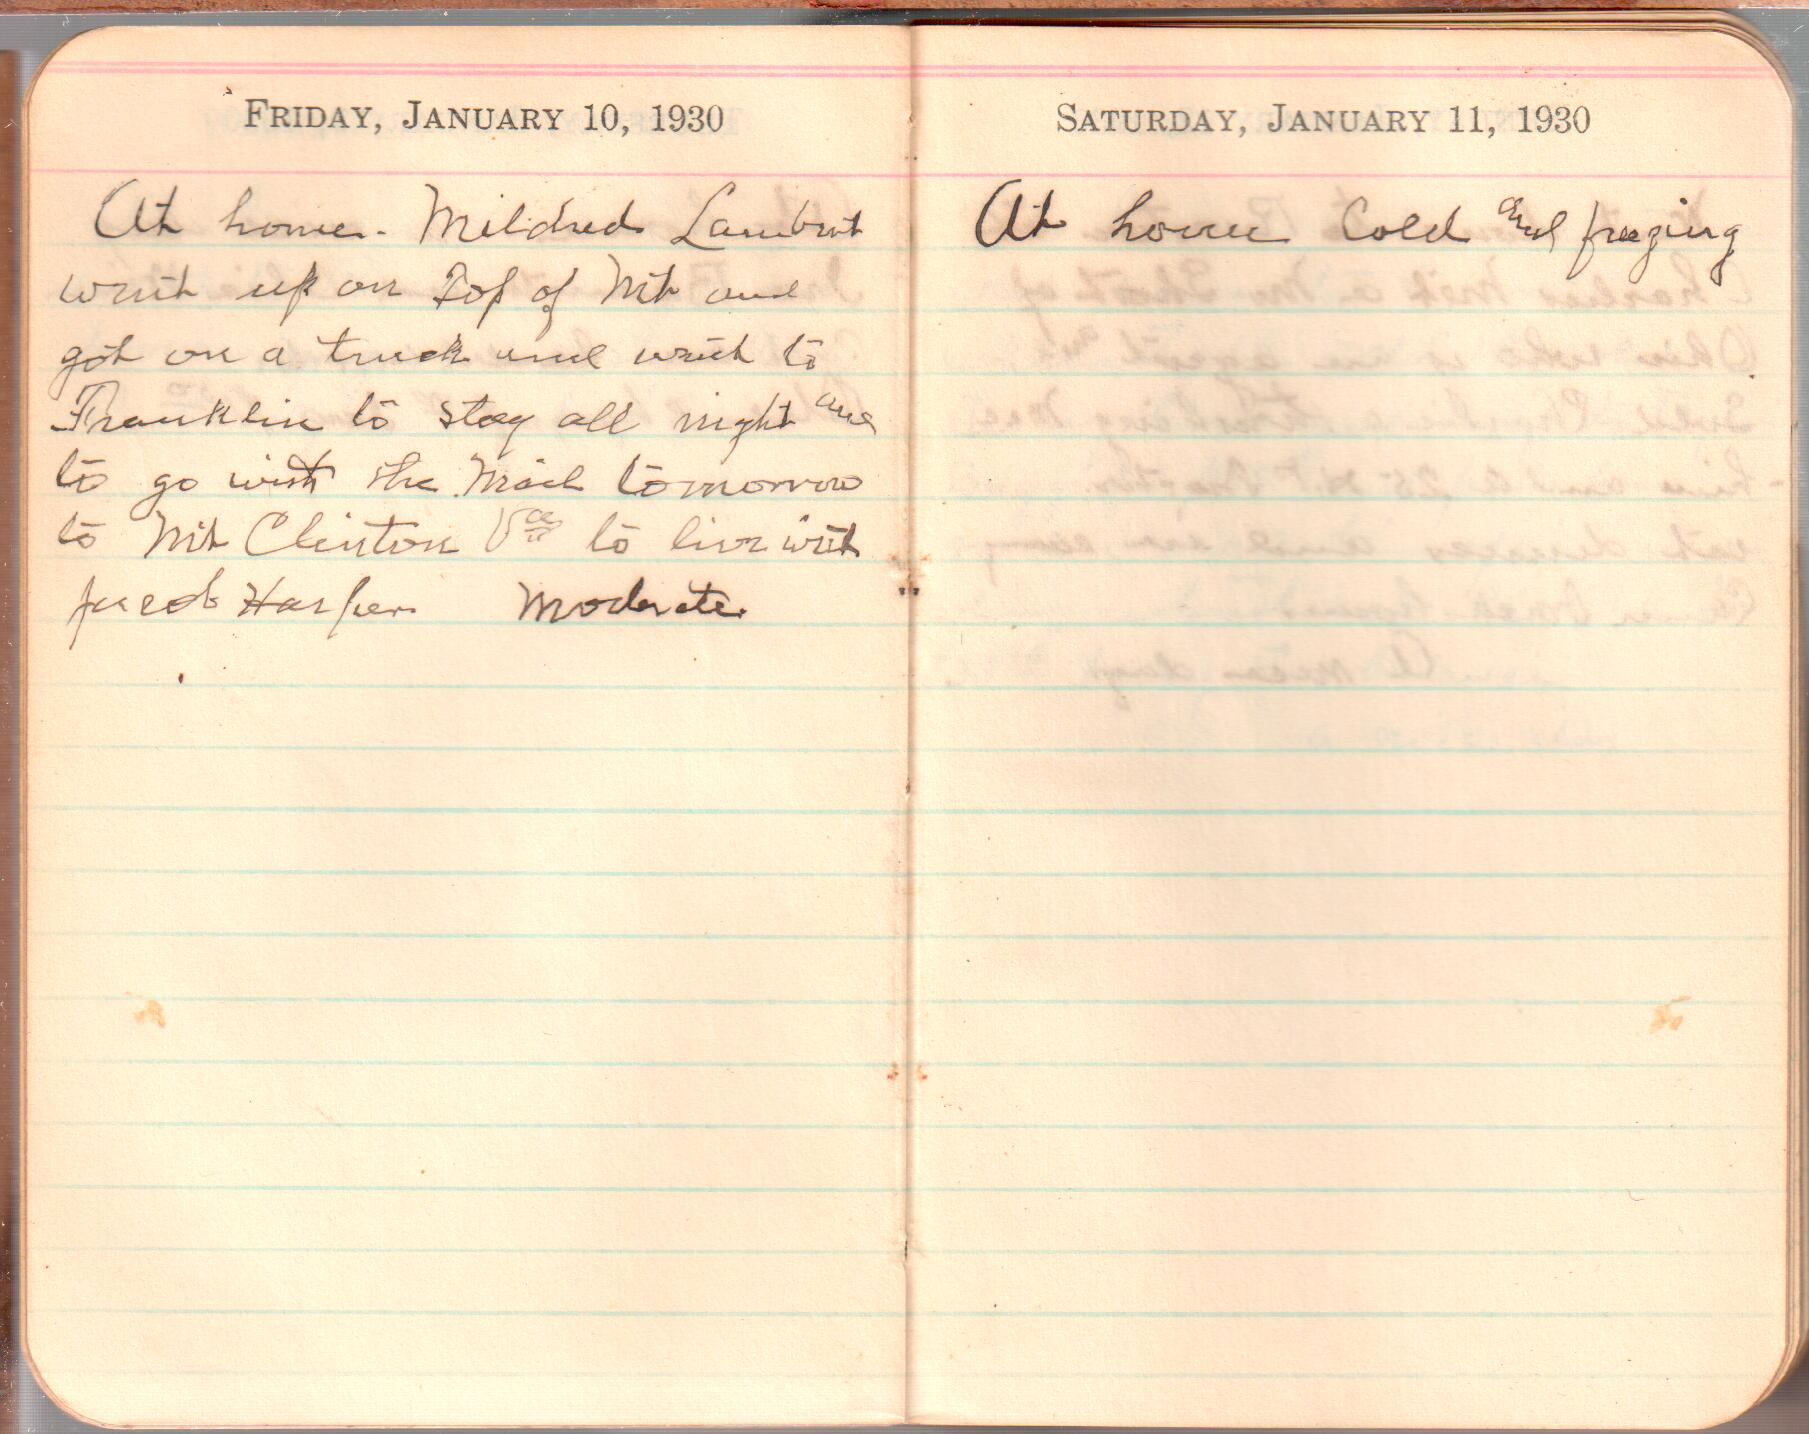 FRIDAY, JANUARY 10, 1930
At home. Mildred Lambert
went up on Top of Mt and
got on a truck and went to
Franklin to stay all night and
to go with the Mail tomorrow
to Mt Clinton Va to live with
Jacob Harper. Moderate.
SATURDAY, JANUARY 11, 1930
At home Cold and freezing